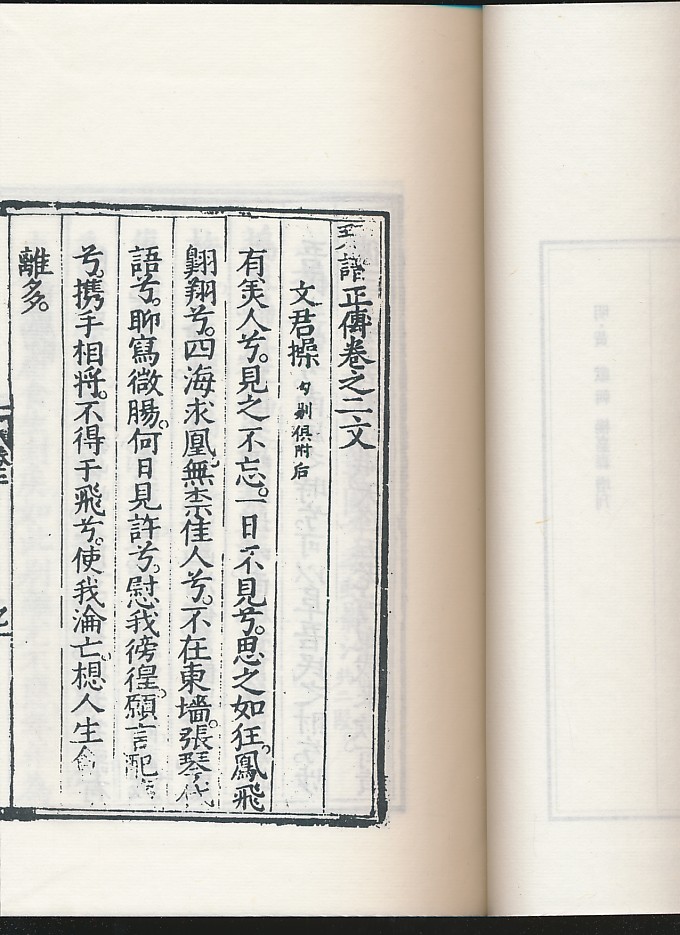 譜正傳卷之二文
文君操 勾剔俱附后
有美人兮。見之不忘。一日不見兮。思之如狂。鳳飛
翺翔兮。四海求凰。無柰佳人兮。不在東墻。張琴代
語兮。聊寫微腸。何日見許兮。慰我徬徨。願言配
兮。携手相將。不得于飛兮。使我淪亡。想人生會
離多。